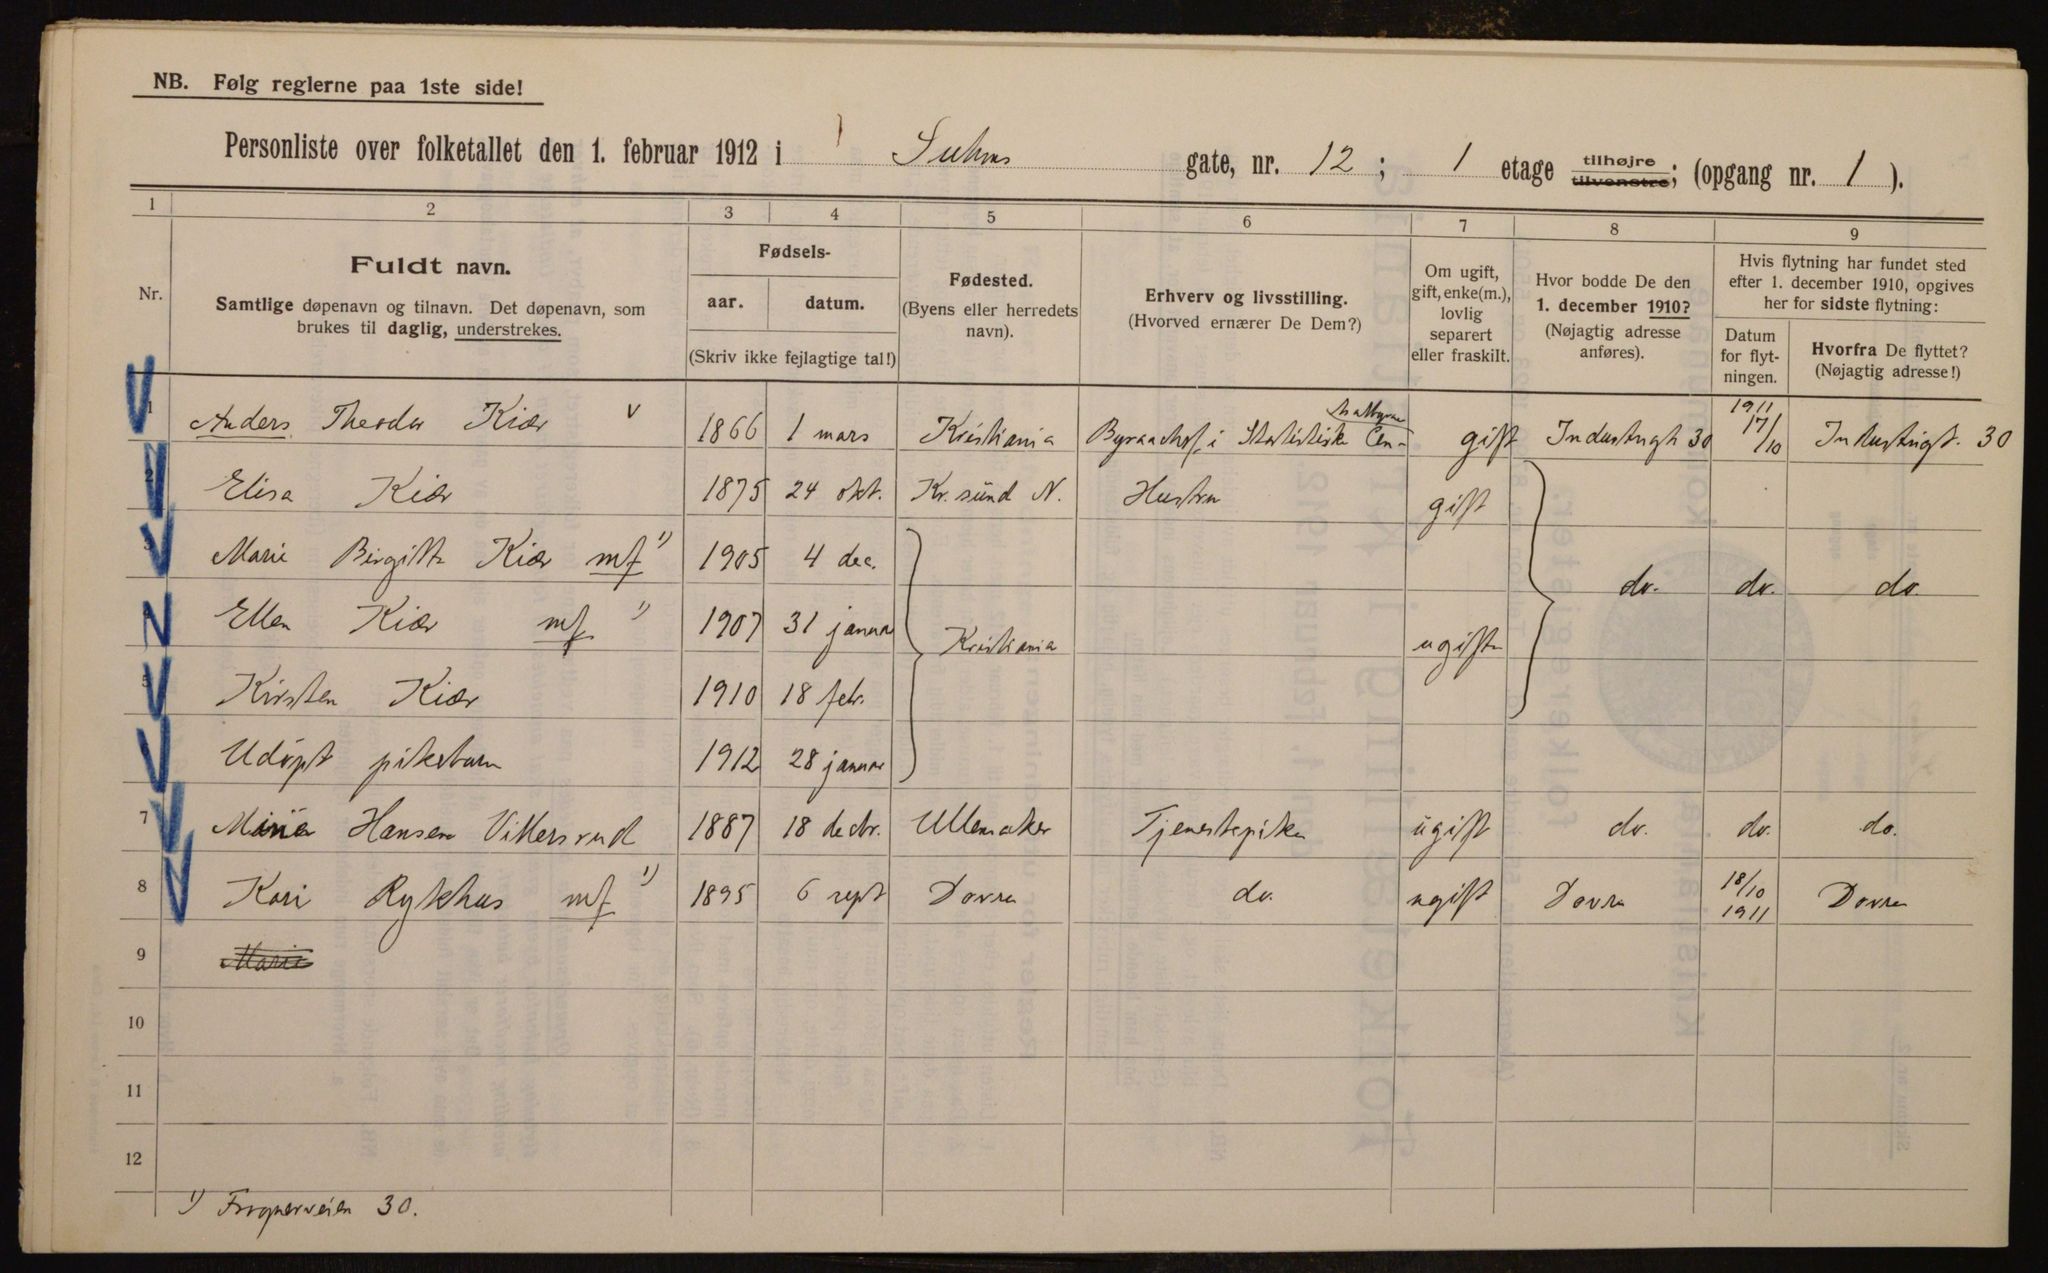 NB. Følg reglerne paa 1ste side!
Personliste over folketallet den 1. februar 1912 i Suhms gate, nr. 12; 1 etage tilhøjre tilvenstre; (opgang nr. 1).
1 2 3 4 5 6 7 8 9
Nr.
Fuldt navn.
Samtlige døpenavn og tilnavn. Det døpenavn, som
brukes til daglig, understrekes.
Fødsels-
aar. datum.
(Skriv ikke fejlagtige tal!)
Fødested.
(Byens eller herredets
navn).
Erhverv og livsstilling.
(Hvorved ernærer De Dem?)
Om ugift,
gift, enke(m.),
lovlig
separert
eller fraskilt.
Hvor bodde De den
1. december 1910?
(Nøjagtig adresse
anføres).
Hvis flytning har fundet sted
efter 1. december 1910, opgives
her for sidste flytning:
Datum
for flyt-
ningen.
Hvorfra De flyttet?
(Nøjagtig adresse!)
1 Anders Theodor Kiær v 1866 1 mars Kristiania Byraachef i Statistiske Cen- gift Industrigt 30 1911 17/10 Industrigt. 30
2 Elisa Kiær 1875 24 okt. Kr.sund N. Hustru gift
3 Marie Birgitte Kiær mf 1) 1905 4 dec. do. do. do.
4 Ellen Kiær mf 1) 1907 31 januar Kristiania ugifte
5 Kirsten Kiær 1910 18 febr.
Udøpt pikebarn 1912 28 januar
7 Hansen Vikersrud 1887 18 decbr. Ullensaker Tjenestepike ugift do. do. do.
8 Kari Rykhus mf 1) 1895 6 sept Dovre do. ugift Dovre 18/10 1911 Dovre
9 Marie
10
11
12
1) Frognerveien 30.